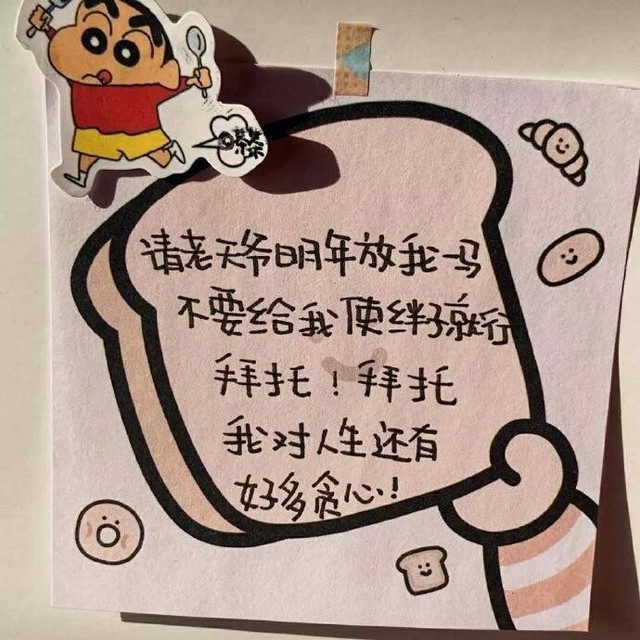 请老天爷明年放我一马
不要给我使绊子就行
拜托！拜托
我对人生还有
好多贪心！